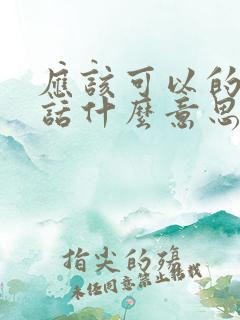 應該可以的
話什麼意思
指尖的殤
未经同意禁止转载